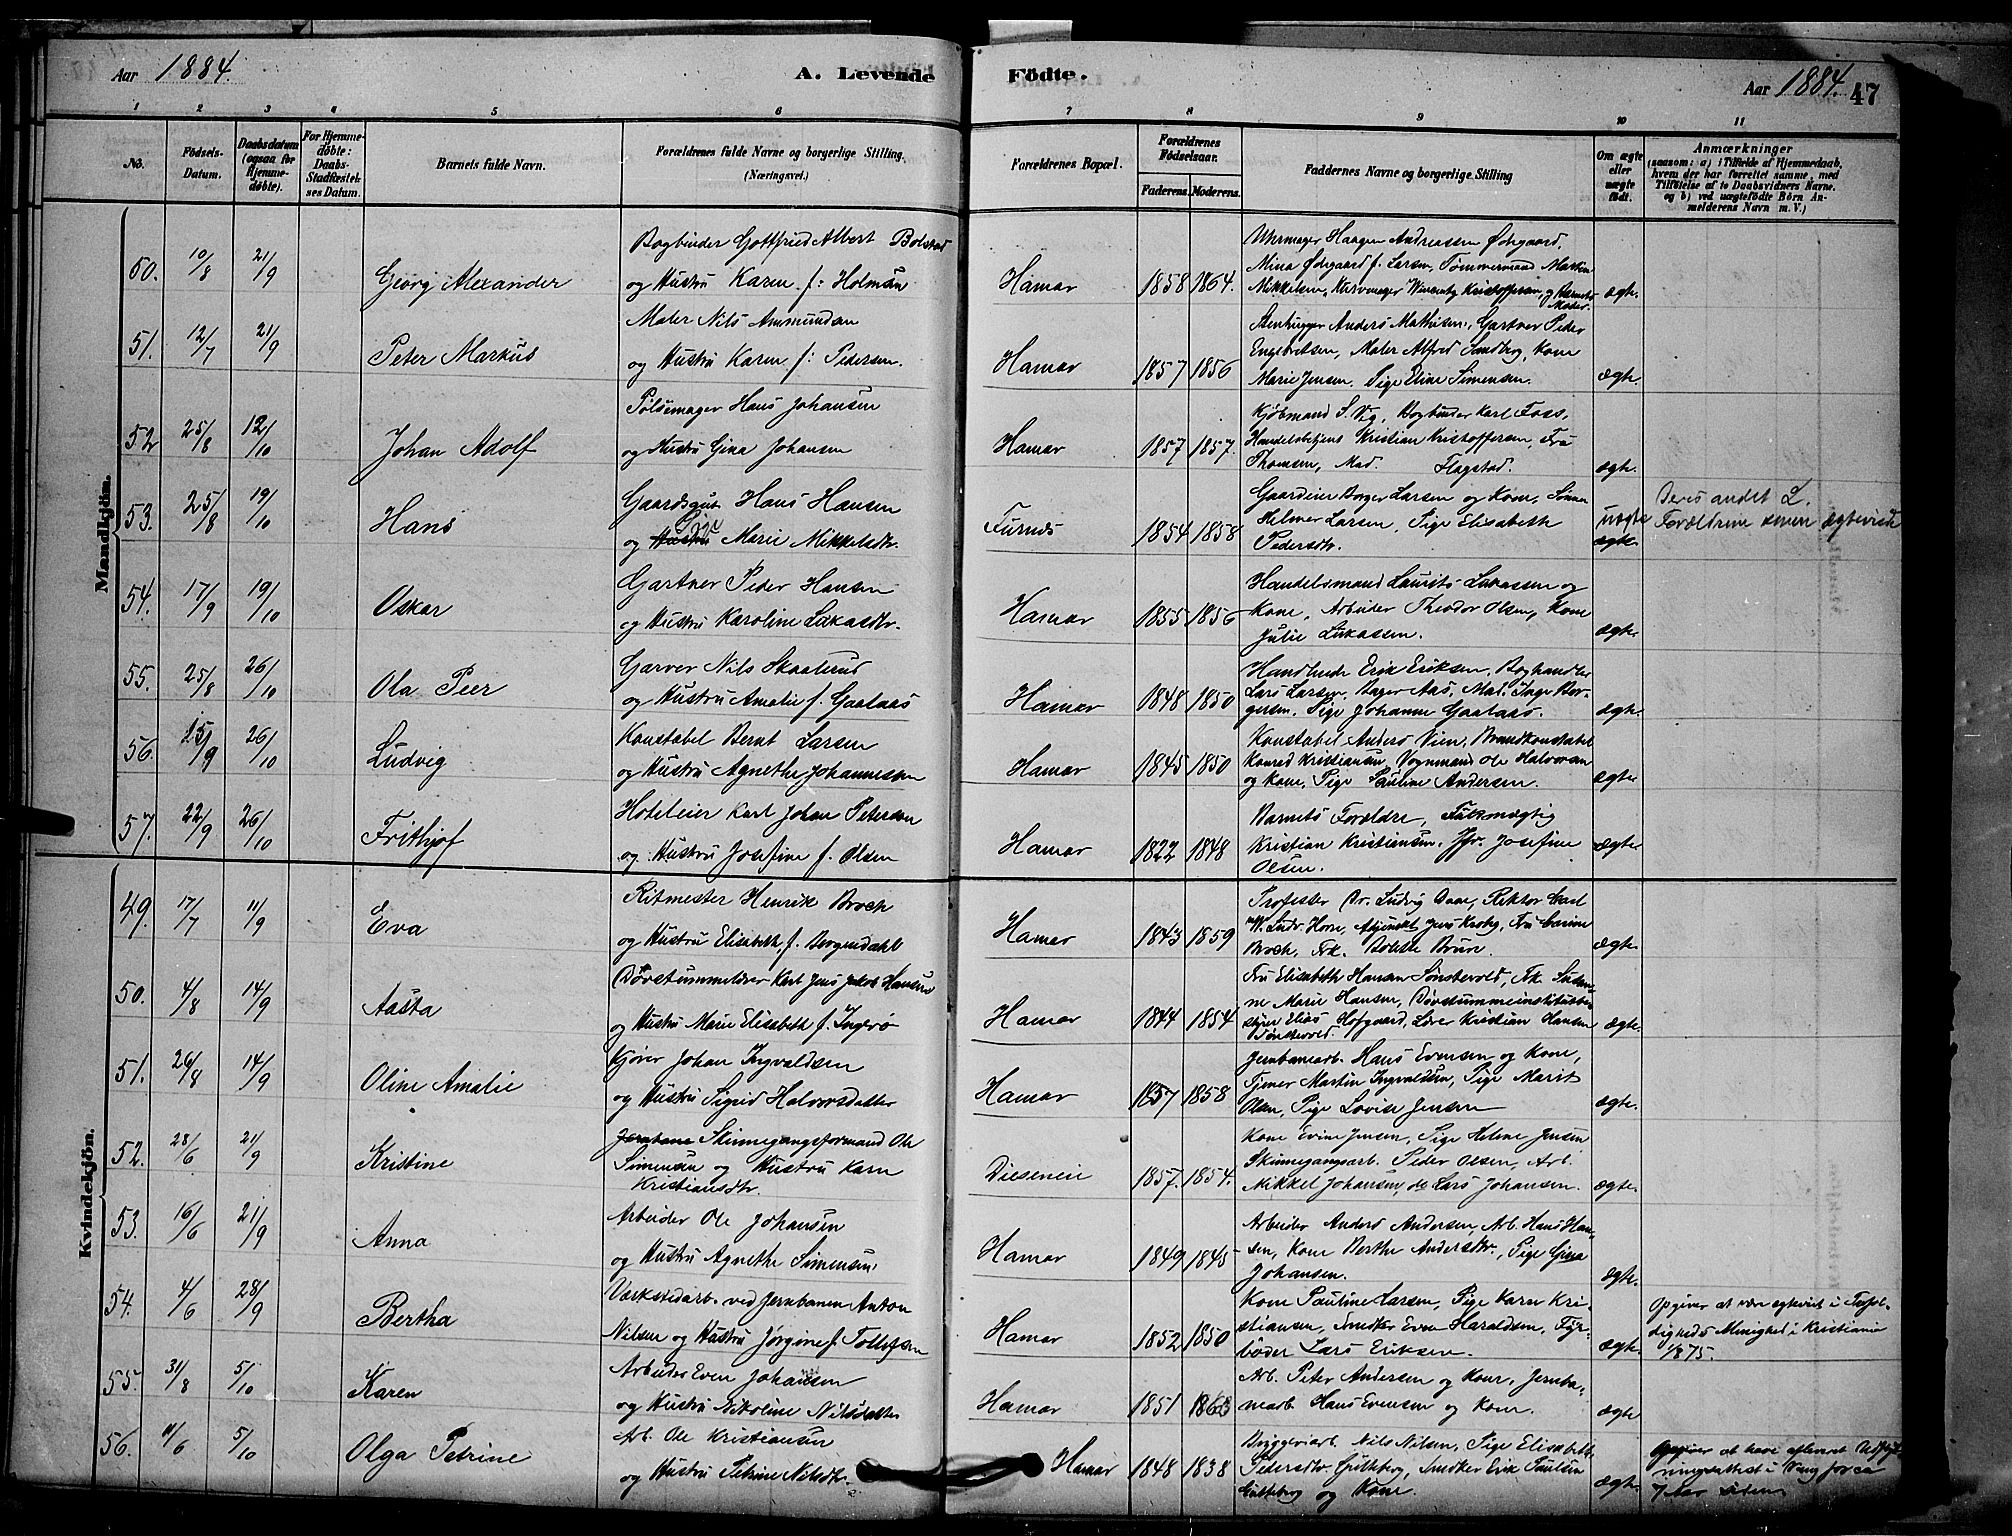 Aar 1884. A. Levende Födte. Aar 1884. 47
1 2 3 4 5 6 7 8 9 10 11
No. Födsels-Datum. Daabsdatum (ogsaa for Hjemmedøbte). For Hjemmedøbte: Daabs-Stadfæstelses Datum. Barnets fulde Navn. Forældrenes fulde Navne og borgerlige Stilling. (Næringsvei.) Forældrenes Bopæl. Forældrenes Födselsaar. Faderens. Moderens. Faddernes Navne og borgerlige Stilling Om ægte eller uægte födt. Anmærkninger (saasom: a) i Tilfælde af Hjemmedaab, hvem der har forrettet samme, med Tilföielse af to Daabsvidners Navne. og b) ved uægtefödte Börn Anmelderens Navn m. V.)
Mandkjön.
50. 10/8 21/9 Georg Alexander
Bogbinder Gottfried Albert Bolstad
og Hustru Karen f: Holmsen
Hamar 1858 1864.
Uhrmager Haagen Andreassen Ødegaard,
Mina Ødegaard f. Larsen, Tømmermand Martin
Mikkelsen, Kurvmager Kristoffersen, og Barnets Moder.
ægte.
51. 12/7 21/9 Peter Markus
Maler Nils Ammundsen
og Hustru Karen f: Pedersen.
Hamar 1857 1856
Stenhugger Anders Mathisen, Gartner Peder
Engebretsen, Maler Alfred Sandberg, Kone
Marie Jensen, Pige Eline Simensen.
ægte.
52 25/8 12/10 Johan Adolf
Pølsemager Hans Johansen
og Hustru Gina Johansen
Hamar 1857 1857.
Kjøbmand S. Vig, Bogbinder Karl Foss,
Handelsbetjent Kristian Kristoffersen, Fru
Thomsen, Mad. Flagstad.
ægte.
53. 25/8 19/10 Hans
Gaardsgut Hans Hansen
og Hustru Pige Marie Mikkelsdtr.
Furnes 1854 1858
Gaardeier Borger Larsen og Kone, Sønnen
Helmer Larsen, Pige Elisabeth
Pedersdtr.
uægte
ægte.
Deres andet L.
Forældrene senere ægteviede
54. 17/9 19/10 Oskar
Gartner Peder Hansen
og Hustru Karoline Lukasdtr.
Hamar 1855 1856
Handelsmand Laurits Lukassen og
Kone, Arbeider Theodor Olsen, Kone
Julie Lukassen.
ægte.
55. 25/8 26/10 Ola Peer
Garver Nils Skaalerud
og Hustru Amalie f. Gaalaas
Hamar 1848 1850
Handlende Erik Eriksen, Boghandler
Lars Larsen, Bager Aas, Mad. Inge Bor-
gersen, Pige Johanne Gaalaas.
ægte.
56. 15/9 26/10 Ludvig
Konstabel Bernt Larsen
og Hustru Agnethe Johannessen
Hamar 1845 1850
Konstabel Anders Vien, Brandkonstabel
Konrad Kristiansen, Vognmand Ole Halvorsen
og Kone, Pige Pauline Andersen.
ægte
57. 22/9 26/10 Frithjof
Hoteleier Karl Johan Petersen
og Hustru Josefine f. Olsen
Hamar 1822 1848
Barnets Forældre, Fuldmægtig
Kristian Kristiansen, Jfr. Josefine
Olsen.
ægte.
Kvindekjön.
49. 17/7 11/9 Eva
Ritmester Henrik Broch
og Hustru Elisabeth f. Bergendahl
Hamar 1843 1859
Professor Dr. Ludvig Daae, Rektor Carl
W. Ludv. Horn, Adjunkt Jens Kraby, Fru Carine
Broch, Frk. Bolette Brun
ægte.
50. 4/8 14/9 Aasta
Døvstummelærer Karl Jens Jakob Hansen
og Hustru Marie Elisabeth f. Ingerø
Hamar 1844 1854
Fru Elisabeth Hansen Sønstevold, Frk. Susan-
ne Marie Hansen, Døvstummeinstitutbe-
styrer Elias Hofgaard, Lærer Kristian Hansen
Sønstevold.
ægte.
51. 26/8 14/9 Oline Amalie
Kjører Johan Ingvaldsen
og Hustru Sigrid Halvorsdatter
Hamar 1857 1858
Jernbanearb. Hans Evensen og Kone,
Tjener Martin Ingvaldsen, Pige Marit
Olsen, Pige Lovise Jensen
ægte.
52. 28/6 21/9 Kristine
Jernbane Skinnegangsformand Ole
Simensen og Hustru Karen
Kristiansdtr.
Dieseneie 1857. 1854.
Kone Evine Jensen, Pige Helene Jensen
Skinnegangsarb. Peder Olsen, Arb.
Mikkel Johansen, do Lars Johansen.
ægte.
53. 16/6 21/9 Anna
Arbeider Ole Johansen
og Hustru Agnethe Simensen
Hamar 1849 1845
Arbeider Anders Andersen, Arb. Hans Han-
sen, Kone Berthe Andersdtr., Pige Gina
Johansen.
ægte.
54. 4/6 28/9 Bertha
Værkstedarb. ved Jernbanen Anton
Nilsen og Hustru Jørgine f. Tollefsen
Hamar 1852 1850
Kone Pauline Larsen, Pige Karen Kri-
stiansen, Snedker Even Haraldsen, Fyr-
bøder Lars Eriksen.
ægte.
Opgiver at være ægteviet i Trefol-
digheds Menighed i Kristiania
1875.
55. 31/8 5/10 Karen
Arbeider Even Johansen
og Hustru Nikoline Nilsdatter
Hamar 1851 1863
Arb. Peter Andersen og Kone, Jernba-
nearb. Hans Evensen og Kone.
ægte
56. 11/6 5/10 Olga Petrine
Arb. Ole Kristiansen
og Hustru Petrine Nilsdtr.
Hamar 1848 1838
Bryggeriarb. Nils Nilsen, Pige Elisabeth
Pedersdtr. Gulleberg, Snedker Erik Paulsen
Gulleberg og Kone.
ægte.
Opgiver at have afleveret Udflyt-
ningsattest i Vang for ca
7 Aar siden